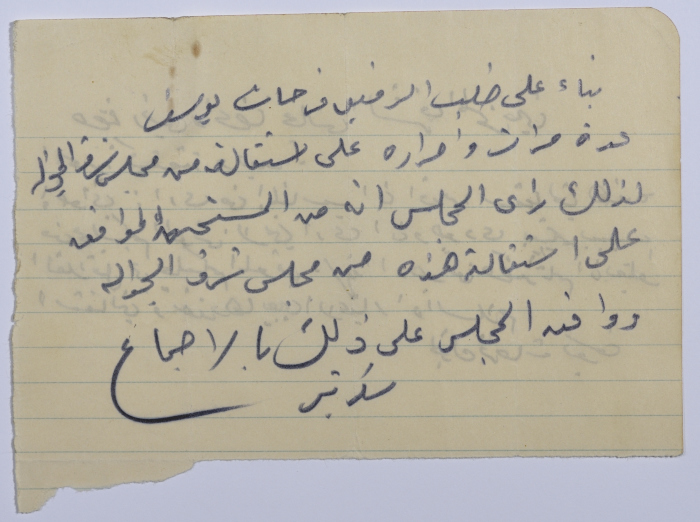 بناء على طلب الرفيق فرحات يوسف
عدة مرات واصراره على استقالته من مجلس شرف الجوالة
لذلك رأى المجلس انه من المستحسن الموافقة
على استقالة هذه من مجلس شرف الجوالة
ووافق المجلس على ذلك بالاجماع
سكرتير